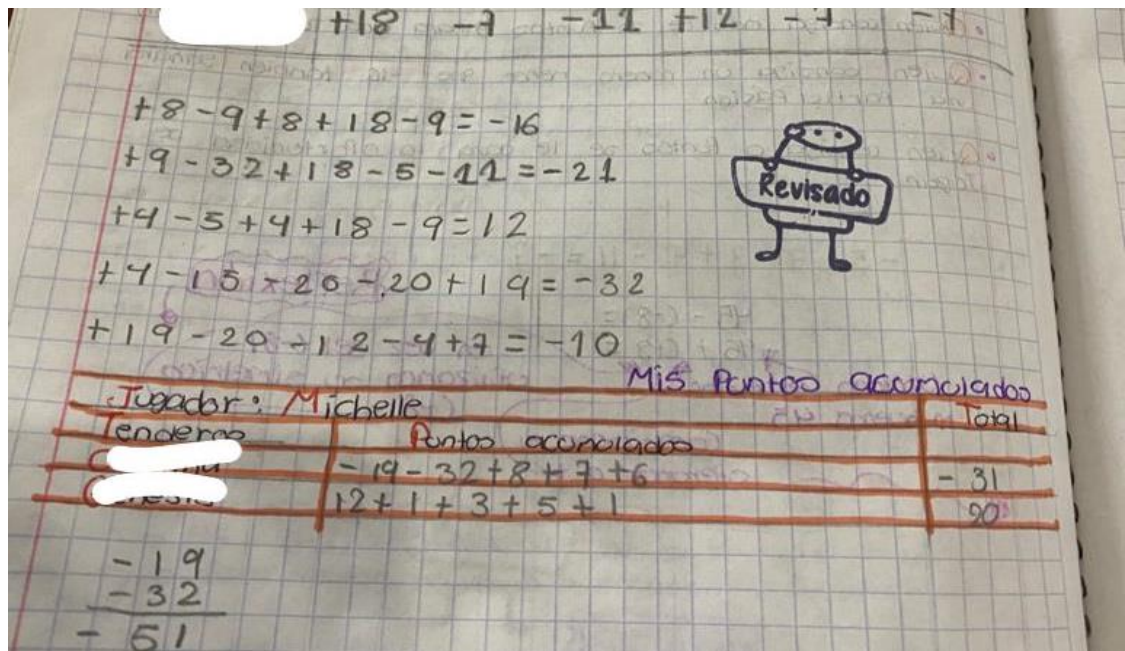 +18 -7 -11 +12 -7 -7
+8-9+8+18-9=-16
+9-32+18-5-11=-21
Revisado
+4-5+4+18-9=12
+4-15-20-20+19=-32
+19-20-12-4+7=-10
Mis Puntos acumulados
Jugador: Michelle Total
Tenderos Puntos acumulados
-19-32+8+7+6 -31
12+1+3+5+1 20
-19
-32
-51